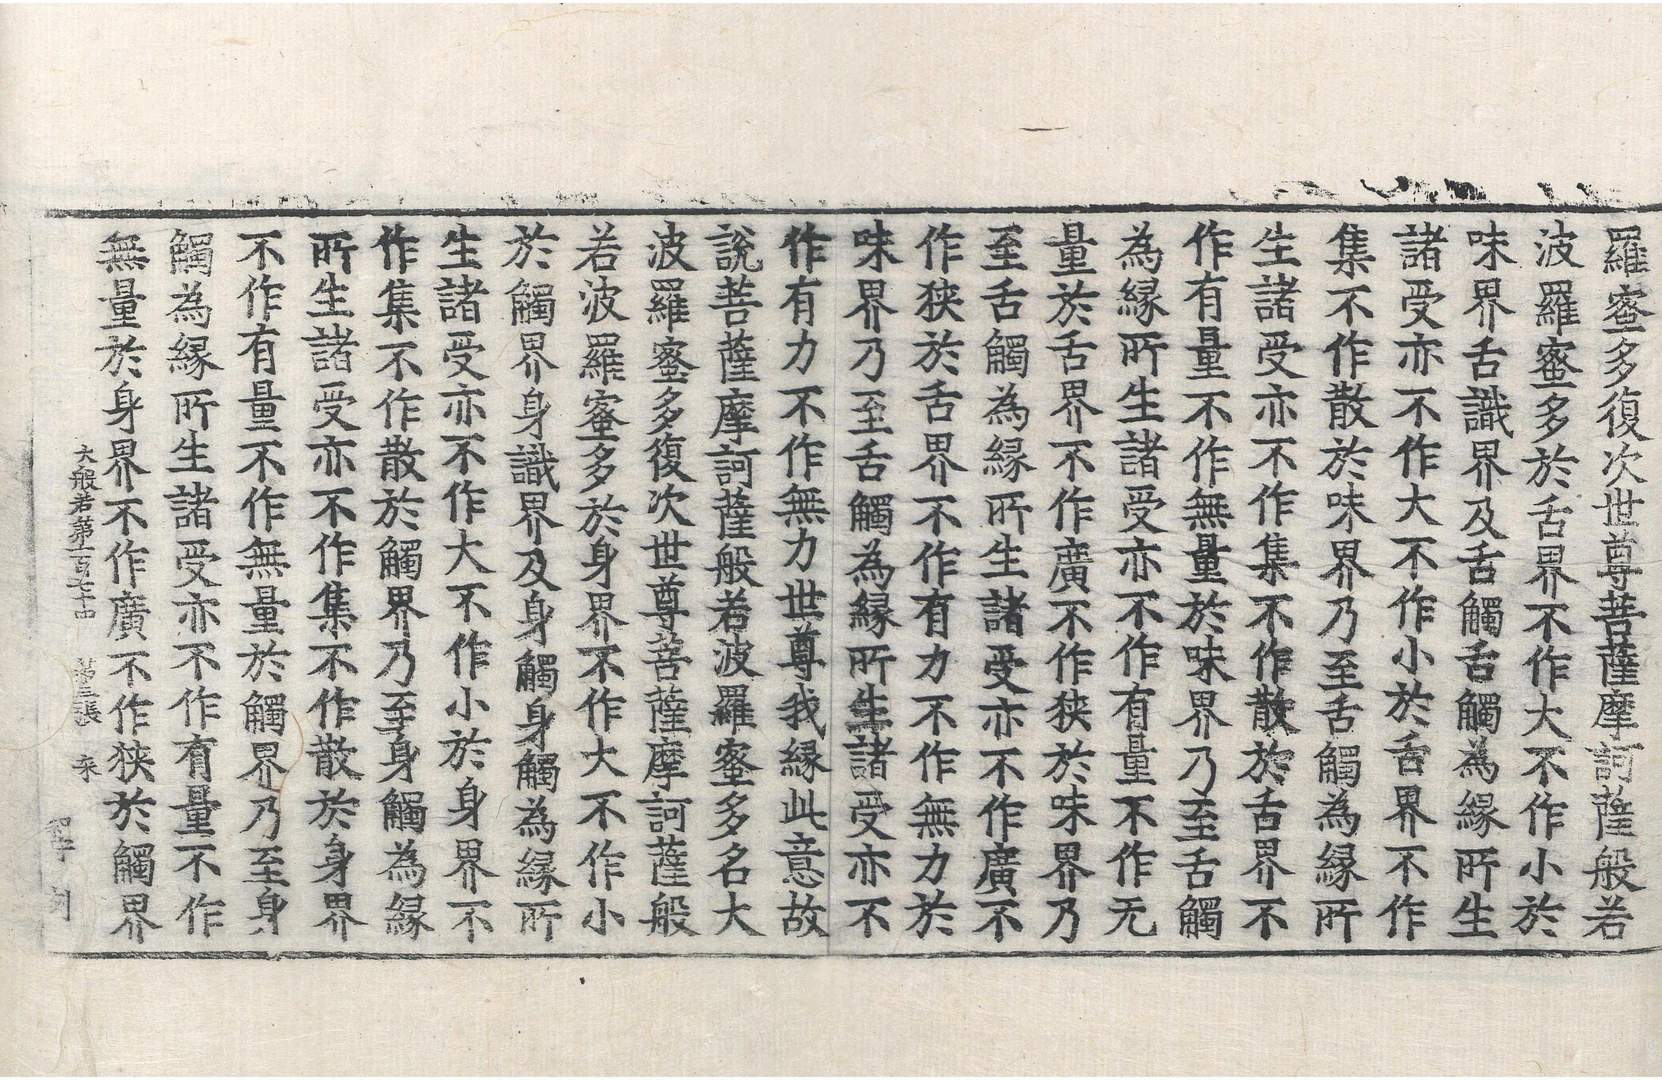 羅蜜多復次世尊菩薩摩訶薩般若
波羅蜜多於舌界不作大不作小於
味界舌識界及舌觸舌觸為緣所生
諸受亦不作大不作小於舌界不作
集不作散於味界乃至舌觸為緣所
生諸受亦不作集不作散於舌界不
作有量不作無量於味界乃至舌觸
為緣所生諸受亦不作有量不作无
量於舌界不作廣不作狹於味界乃
至舌觸為緣所生諸受亦不作廣不
作狹於舌界不作有力不作無力於
味界乃至舌觸為緣所生諸受亦不
作有力不作無力世尊我緣此意故
說菩薩摩訶薩般若波羅蜜多名大
波羅蜜多復次世尊菩薩摩訶薩般
若波羅蜜多於身界不作大不作小
於觸界身識界及身觸身觸為緣所
生諸受亦不作大不作小於身界不
作集不作散於觸界乃至身觸為緣
所生諸受亦不作集不作散於身界
不作有量不作無量於觸界乃至身
觸為緣所生諸受亦不作有量不作
無量於身界不作廣不作狹於觸界
大般若第一百七十四 第三張 柰